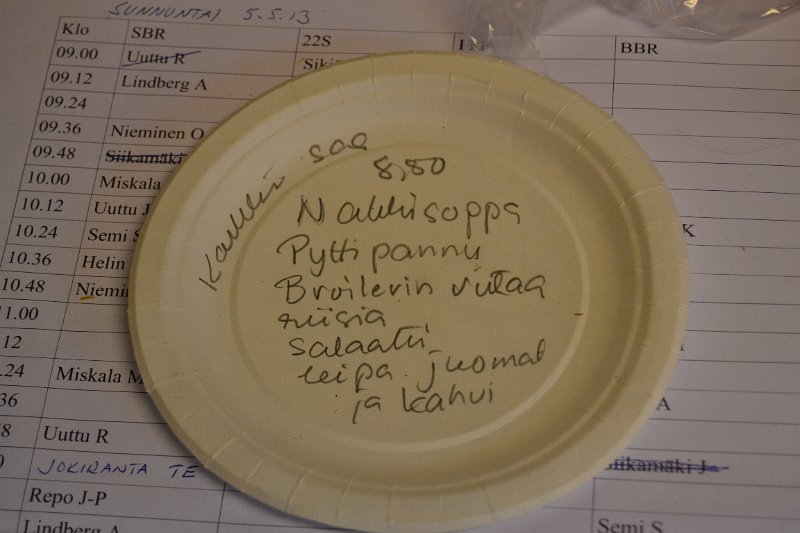 SUNNUNTAI 5.5.13
Klo SBR 22S BBR
09.00 Uuttu R
09.12 Lindberg A
09.24
09.36 Nieminen O
09.48 Siikamäki
10.00 Miskala
10.12 Uuttu J
10.24 Semi S K
10.36 Helin
10.48 Niemin
11.00
12
.24 Miskala M
36 A
8 Uuttu R
0 JOKIRANTA TE Siikamäki J
Repo J-P
Lindberg A Semi S
Kaikkii saa
8,80
Nakkisoppa
Pyttipannu
Broilerin viitaa
riisia
salaatti,
leipa juomat
ja kahvi